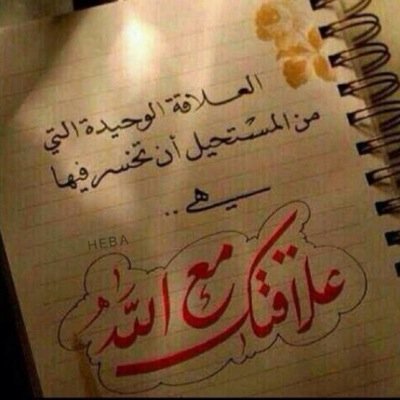 العلاقة الوحيدة التي
من المستحيل أن تخسر فيها
هي ..
HEBA
علاقتك مع الله